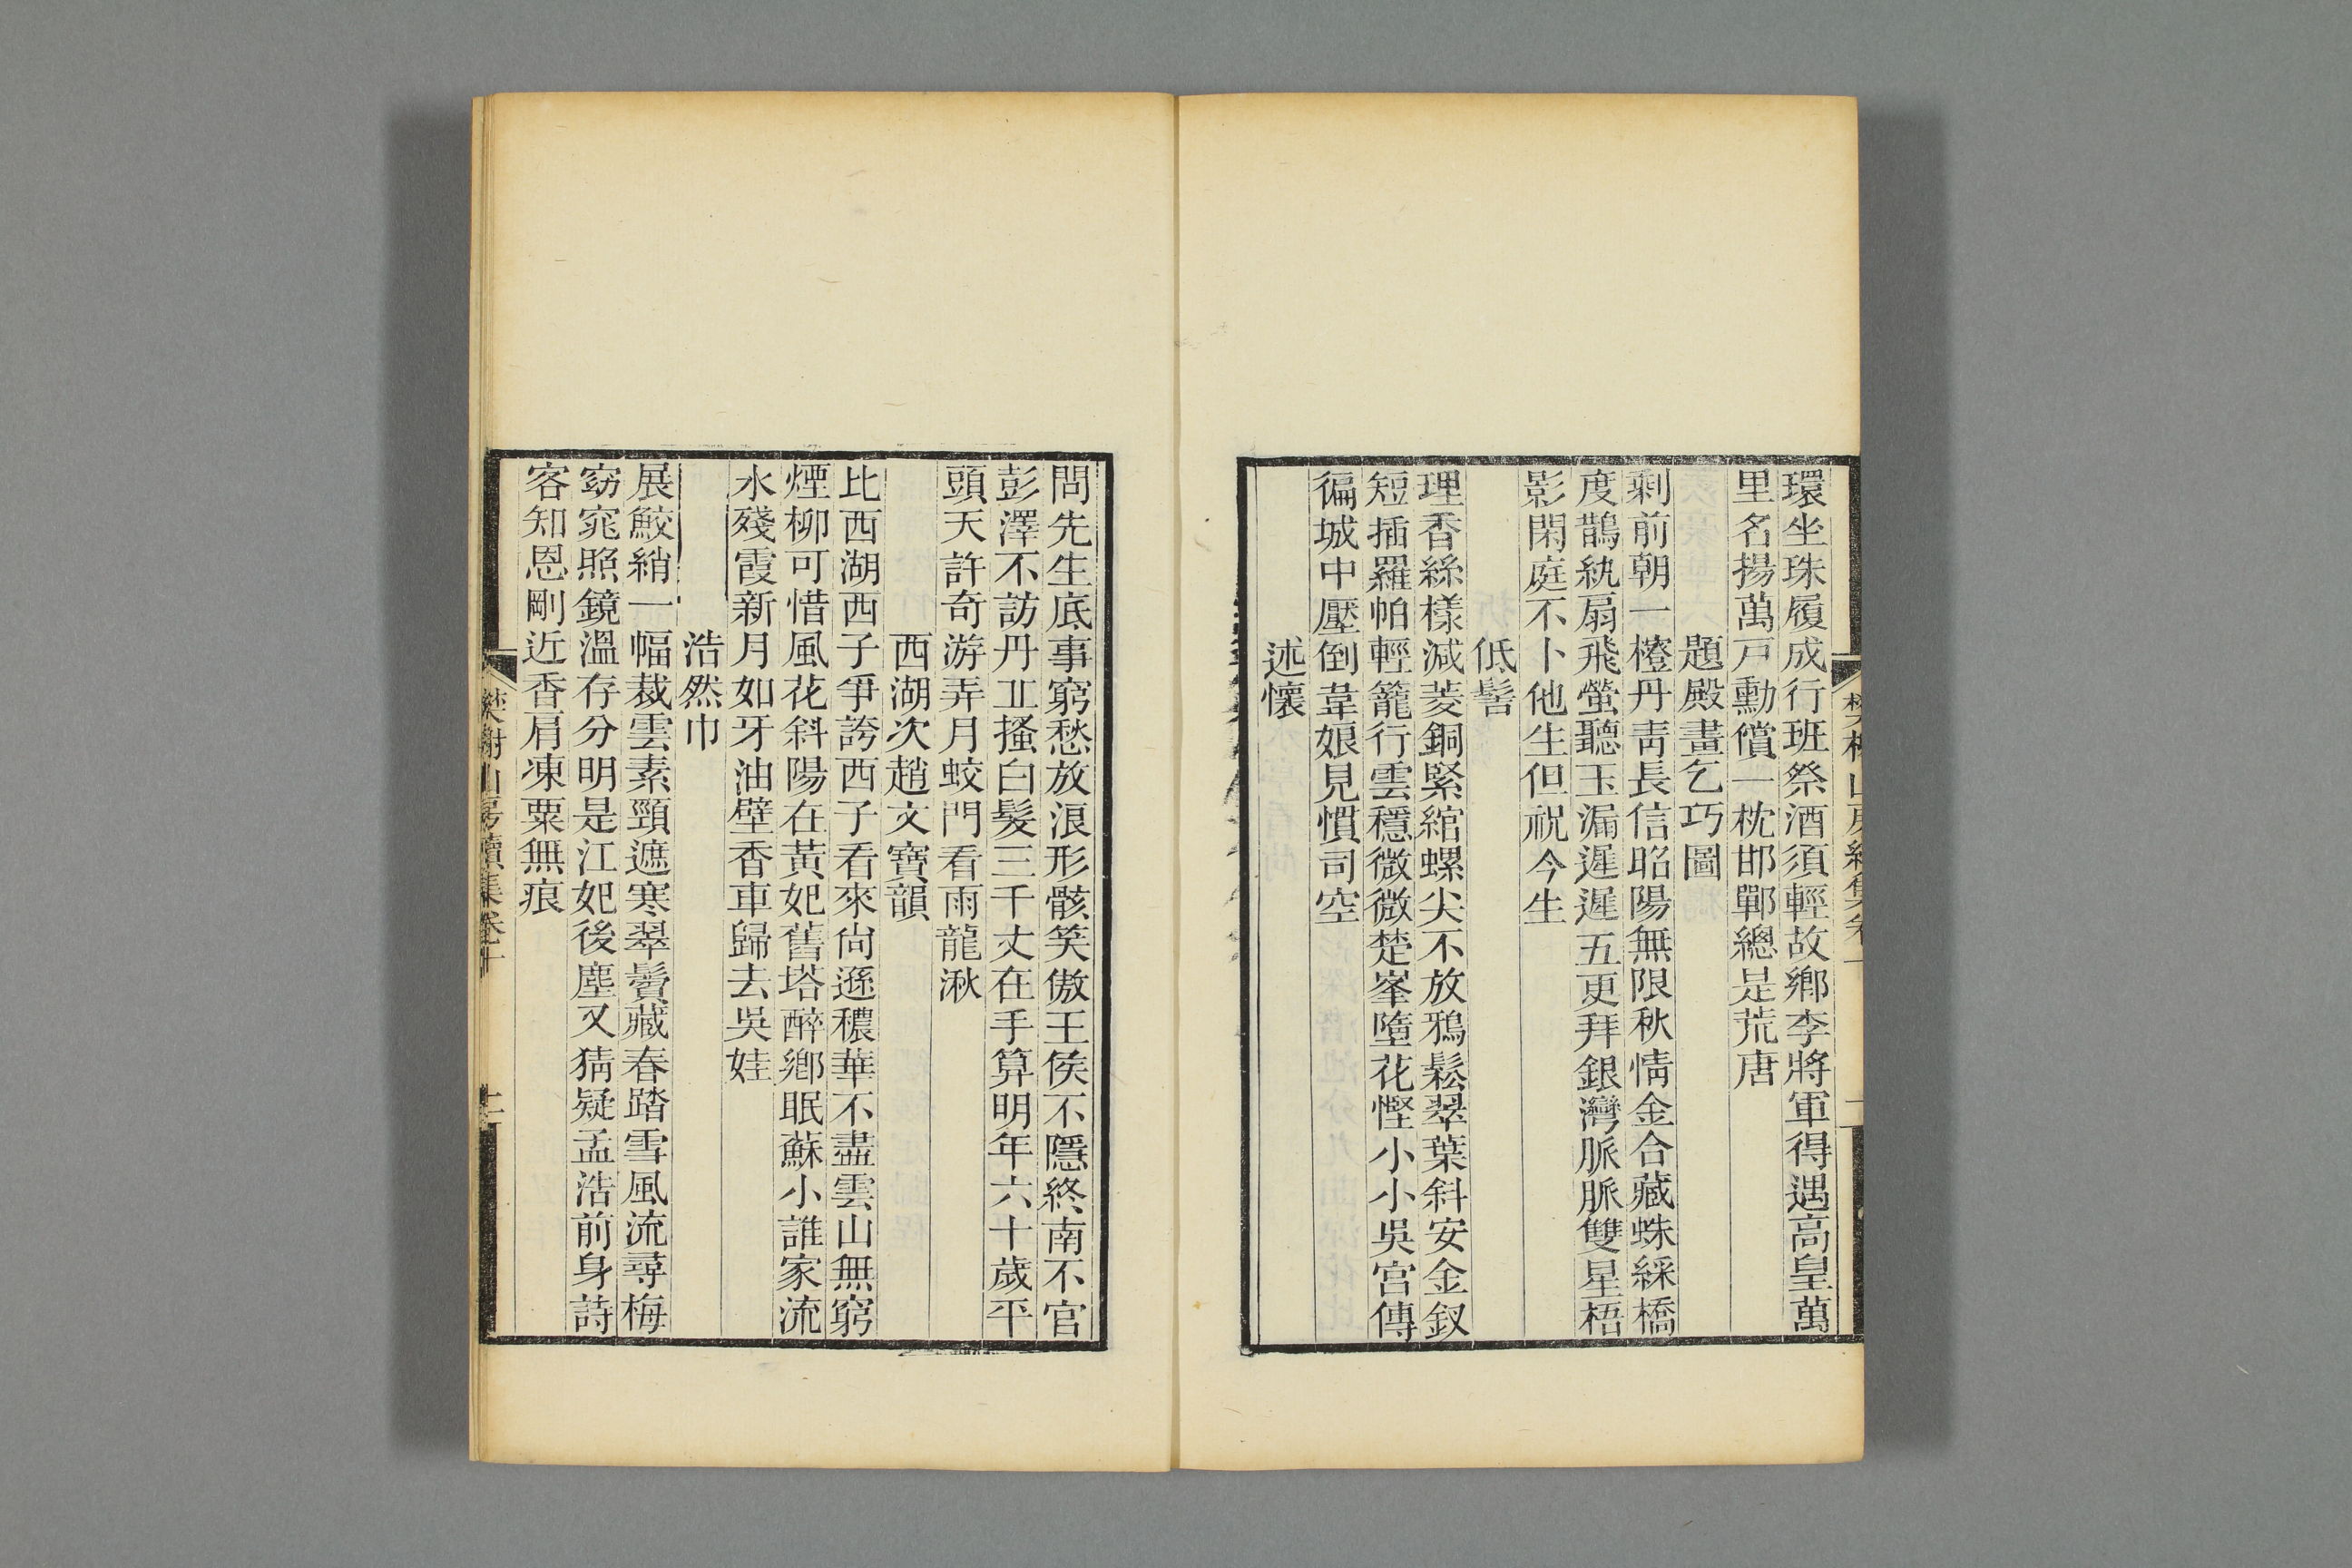 環坐珠履成行班祭酒須輕故鄉李將軍得遇高皇萬
里名揚萬戸勳償一枕邯鄲總是荒唐
題殿畫乞巧圖
剩前朝一㡧丹靑長信昭陽無限秋情金合藏蛛綵橋
度鵲紈扇飛螢聽玉漏遲遲五更拜銀灣脈脈雙星梧
影閑庭不卜他生但祝今生
低髻
理香絲樣減菱銅緊綰螺尖不放鴉鬆翠葉斜安金釵
短插羅帕輕籠行雲穩微微楚峯墮花慳小小吳宮傳
徧城中壓倒韋娘見慣司空
述懷
問先生底事窮愁放浪形骸笑傲王侯不隱終南不官
彭澤不訪丹丘搔白髮三千丈在手算明年六十歲平
頭天許奇游弄月蛟門看雨龍湫
西湖次趙文寶韻
比西湖西子爭誇西子看來尙遜穠華不盡雲山無窮
煙柳可惜風花斜陽在黃妃舊塔醉鄕眠蘇小誰家流
水殘霞新月如牙油壁香車歸去吳娃
浩然巾
展鮫綃一幅裁雲素頸遮寒翠鬢藏春踏雪風流尋梅
窈窕照鏡溫存分明是江妃後塵又猜疑孟浩前身詩
客知恩剛近香肩凍粟無痕
樊榭山房續集卷十